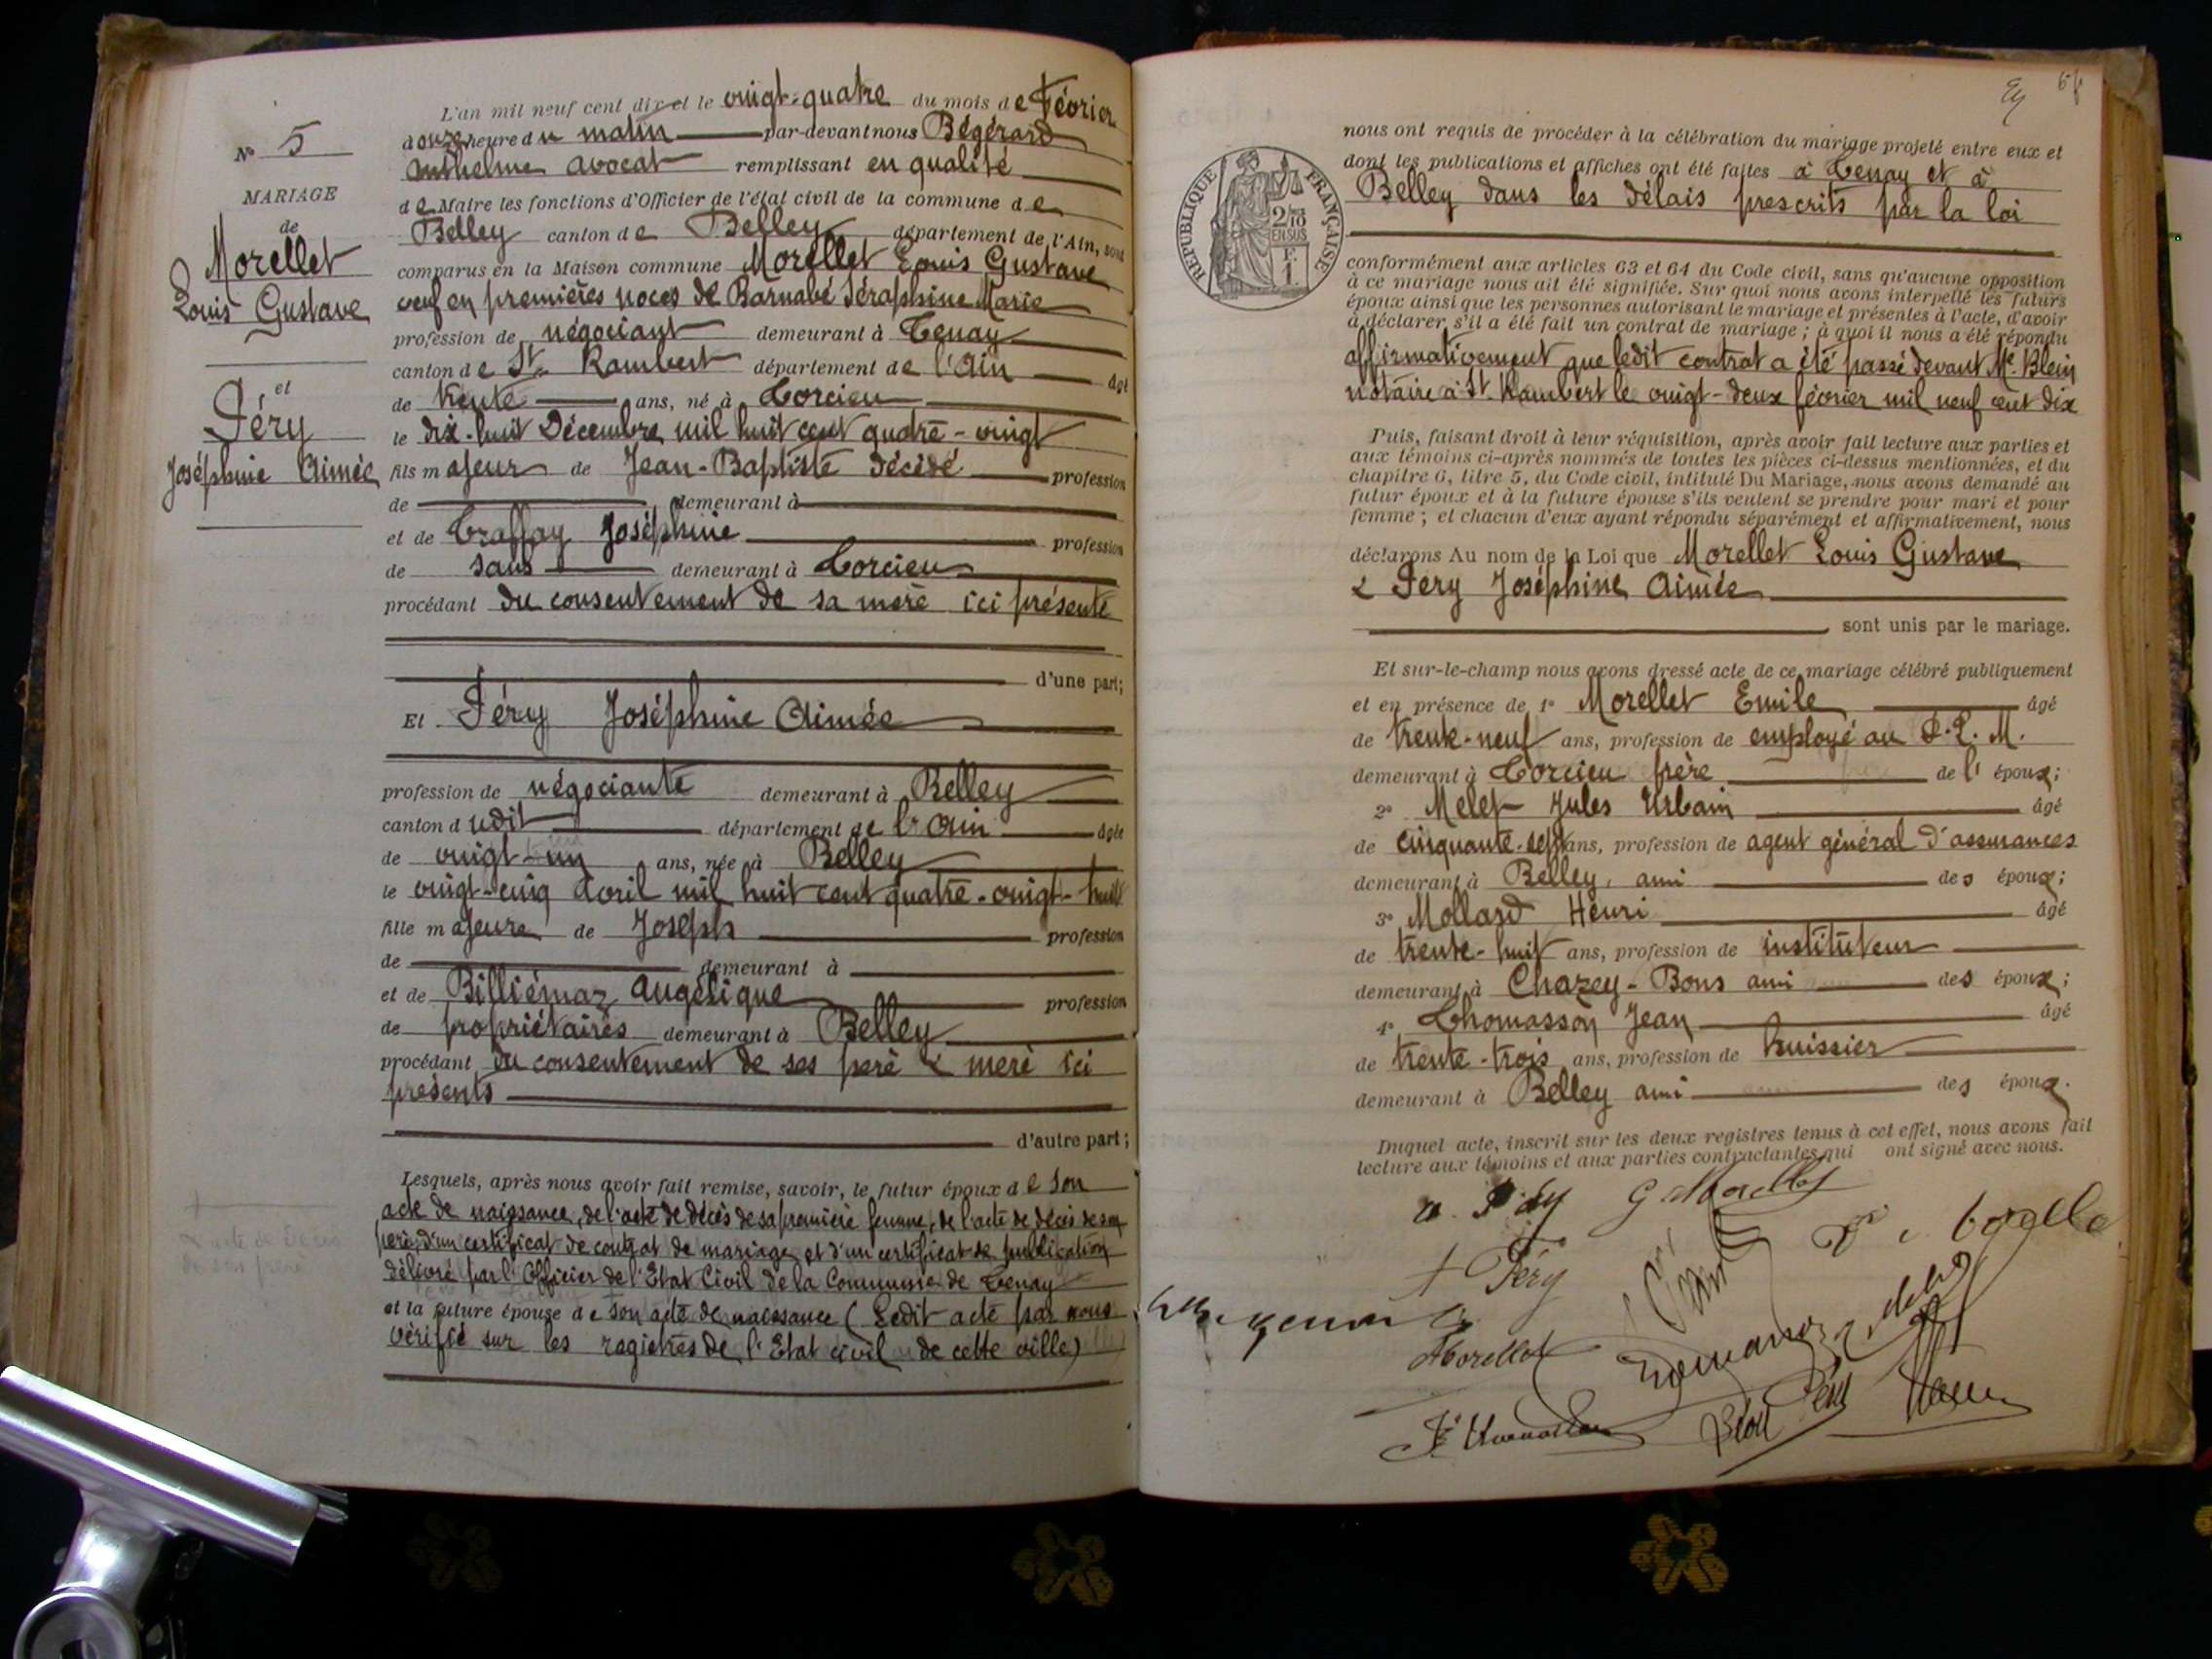 N° 5
MARIAGE
de
Morellet
Louis Gustave
et
Féry
Joséphine Aimée
L'an mil neuf cent dix et le vingt-quatre du mois de Février
à onze heure du matin par-devant nous Bégérard
Anthelme avocat remplissant en qualité
de Maire les fonctions d'Officier de l'état civil de la commune de
Belley canton de Belley département de l'Ain, sont
comparus en la Maison commune Morellet Louis Gustave
veuf en premières noces de Barnabé Séraphine Marie
profession de négociant demeurant à Tenay
canton de St Rambert département de l'Ain âgé
de trente ans, né à Torcieu
le dix-huit Décembre mil huit cent quatre-vingt
fils majeur de Jean-Baptiste décédé profession
de demeurant à
et de Traffay Joséphine profession
de sans demeurant à Torcieu
procédant du consentement de sa mère ici présente
d'une part;
Et Féry Joséphine Aimée
profession de négociante demeurant à Belley
canton dudit département de l'Ain âgée
de vingt-un ans, née à Belley
le vingt-cinq Avril mil huit cent quatre-vingt-huit
fille majeure de Joseph profession
de demeurant à
et de Billiémaz Angélique profession
de propriétaires demeurant à Belley
procédant du consentement de ses père & mère ici
présents
d'autre part;
Lesquels, après nous avoir fait remise, savoir, le futur époux de son
acte de naissance, de l'acte de décès de sa première femme, de l'acte de décès de son
père, d'un certificat de contrat de mariage et d'un certificat de publication
délivré par l'Officier de l'Etat Civil de la Commune de Tenay
et la future épouse de son acte de naissance (Ledit acte par nous
vérifié sur les registres de l'Etat civil de cette ville)
nous ont requis de procéder à la célébration du mariage projeté entre eux et
dont les publications et affiches ont été faites à Tenay et à
Belley dans les délais prescrits par la loi
RÉPUBLIQUE FRANÇAISE
2/10
EN SUS
F.
1
conformément aux articles 63 et 64 du Code civil, sans qu'aucune opposition
à ce mariage nous ait été signifiée. Sur quoi nous avons interpellé les futurs
époux ainsi que les personnes autorisant le mariage et présentes à l'acte, d'avoir
à déclarer s'il a été fait un contrat de mariage ; à quoi il nous a été répondu
affirmativement que ledit contrat a été passé devant Me Blein
notaire à St Rambert le vingt-deux février mil neuf cent dix
Puis, faisant droit à leur réquisition, après avoir fait lecture aux parties et
aux témoins ci-après nommés de toutes les pièces ci-dessus mentionnées, et du
chapitre 6, titre 5, du Code civil, intitulé Du Mariage, nous avons demandé au
futur époux et à la future épouse s'ils veulent se prendre pour mari et pour
femme ; et chacun d'eux ayant répondu séparément et affirmativement, nous
déclarons Au nom de la Loi que Morellet Louis Gustave
& Féry Joséphine Aimée
sont unis par le mariage.
Et sur-le-champ nous avons dressé acte de ce mariage célébré publiquement
et en présence de 1° Morellet Emile âgé
de trente-neuf ans, profession de employé au P.L.M.
demeurant à Torcieu frère de l'époux;
2° Melet Jules Urbain âgé
de cinquante-sept ans, profession de agent général d'assurances
demeurant à Belley, ami des époux;
3° Mollard Henri âgé
de trente-huit ans, profession de instituteur
demeurant à Chazey-Bons ami des époux;
4° Thomasson Jean âgé
de trente-trois ans, profession de huissier
demeurant à Belley ami des époux.
Duquel acte, inscrit sur les deux registres tenus à cet effet, nous avons fait
lecture aux témoins et aux parties contractantes qui ont signé avec nous.
G. Morellet
Féry
Morellet